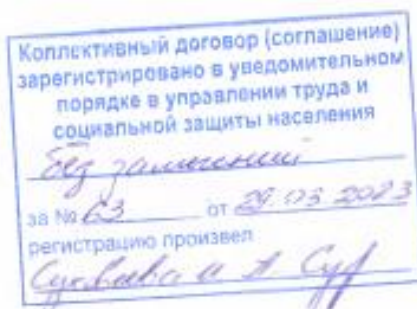 Коллективный договор (соглашение)
зарегистрировано в уведомительном
порядке в управлении труда и
социальной защиты населения
без замечаний
за № 63 от 29.03.2023
регистрацию произвел